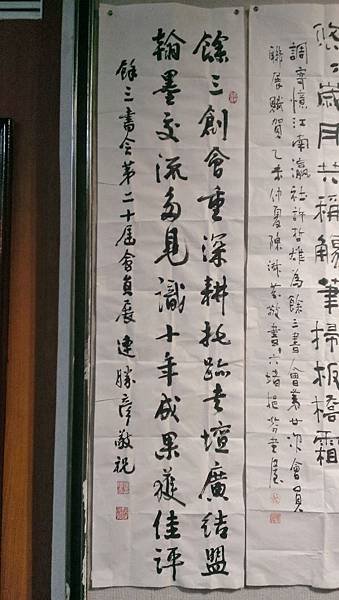 悠〻歲月共稱觴筆掃板橋霜
調寄憶江南瀛社許哲雄為餘三書會第廿次會員
聯展賦賀乙未仲夏陳淑敬書六堵挹芬書屋
餘三創會重深耕托跡書壇廣結盟
翰墨交流多見識十年成果獲佳評
餘三書會第二十屆會員展連勝彥敬祝